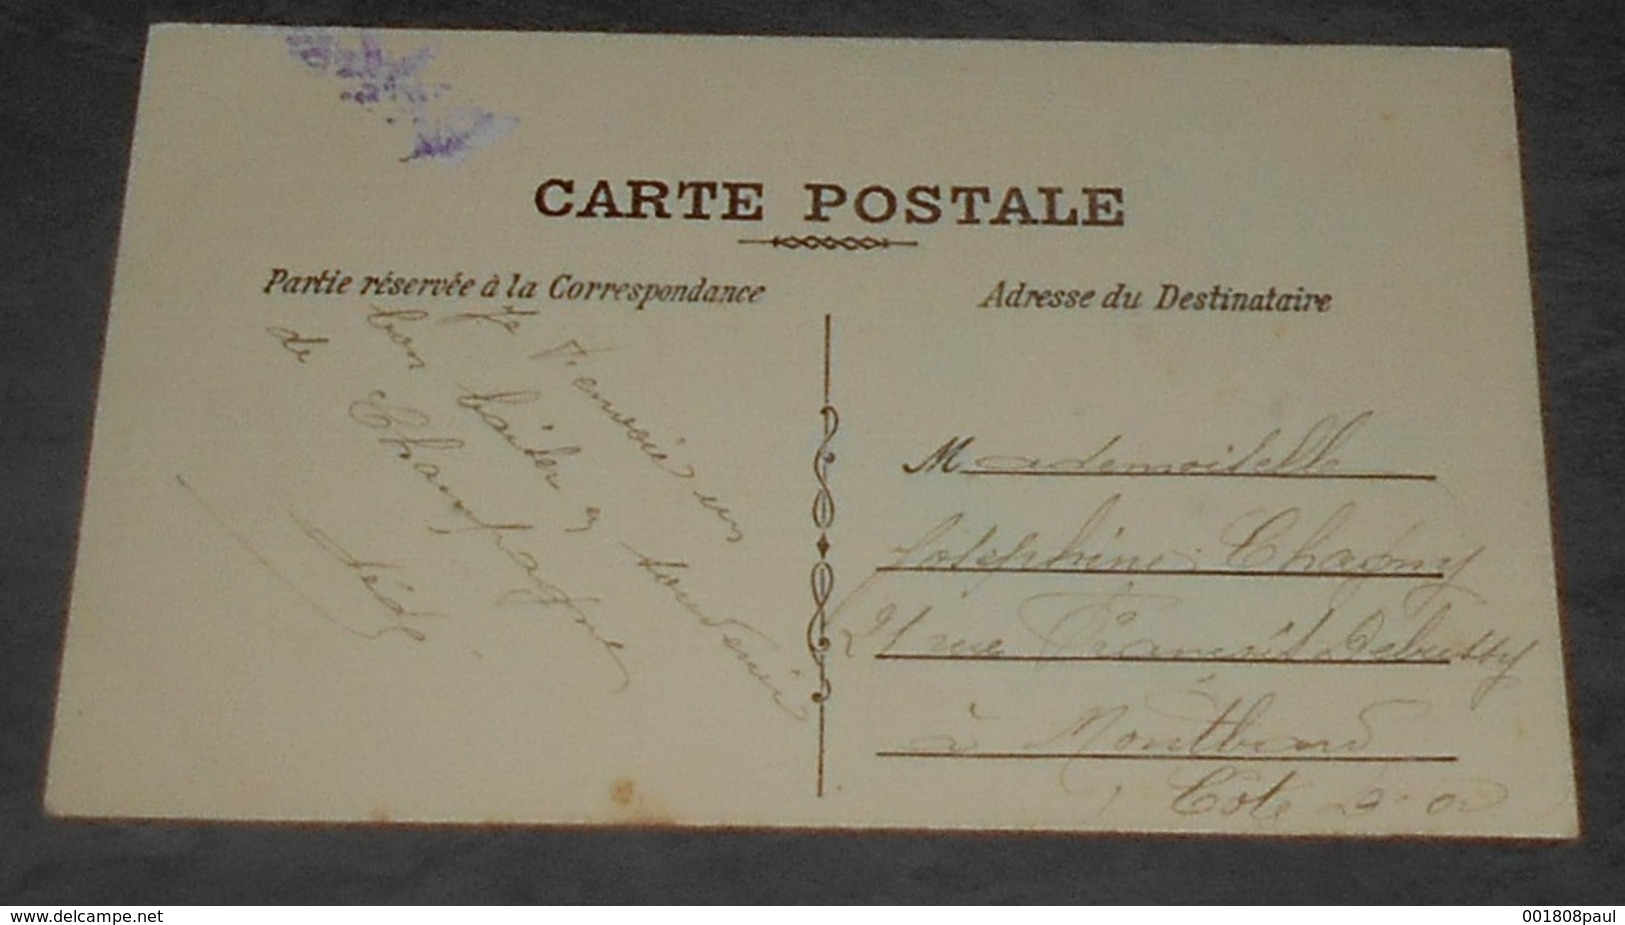 CARTE POSTALE
Partie réservée à la Correspondance
Je t'envoie un
bon baiser &
de Champagne
souvenir
Adresse du Destinataire
Mademoiselle
Josephine Chagny
21 rue François Debussy
à Montbard
Côte d'or
www.delcampe.net
001808paul